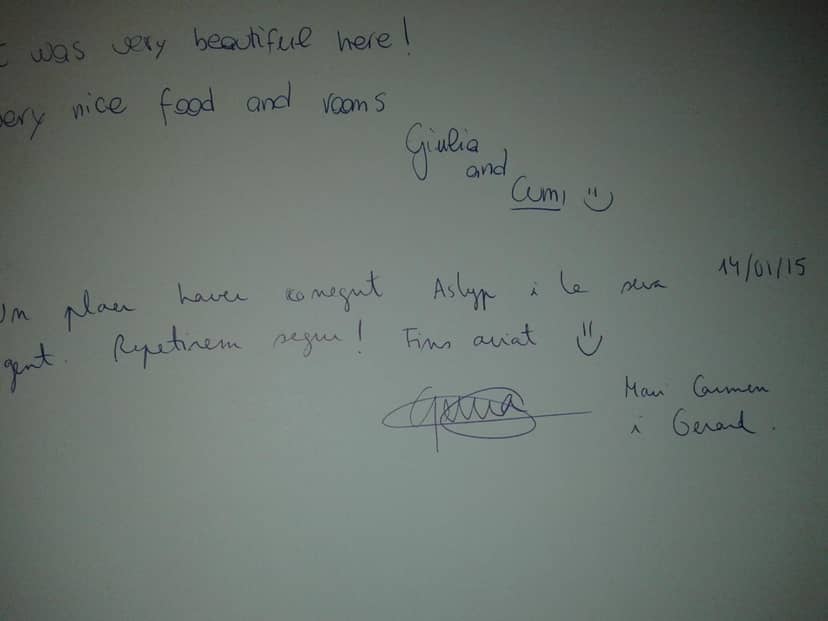 t was very beautiful here!
very nice food and rooms
Giulia
and
14/01/15
Un plaer haver conegut i la seva
gent. Repetirem segur! Fins aviat
Mari Carmen
i Gerard.